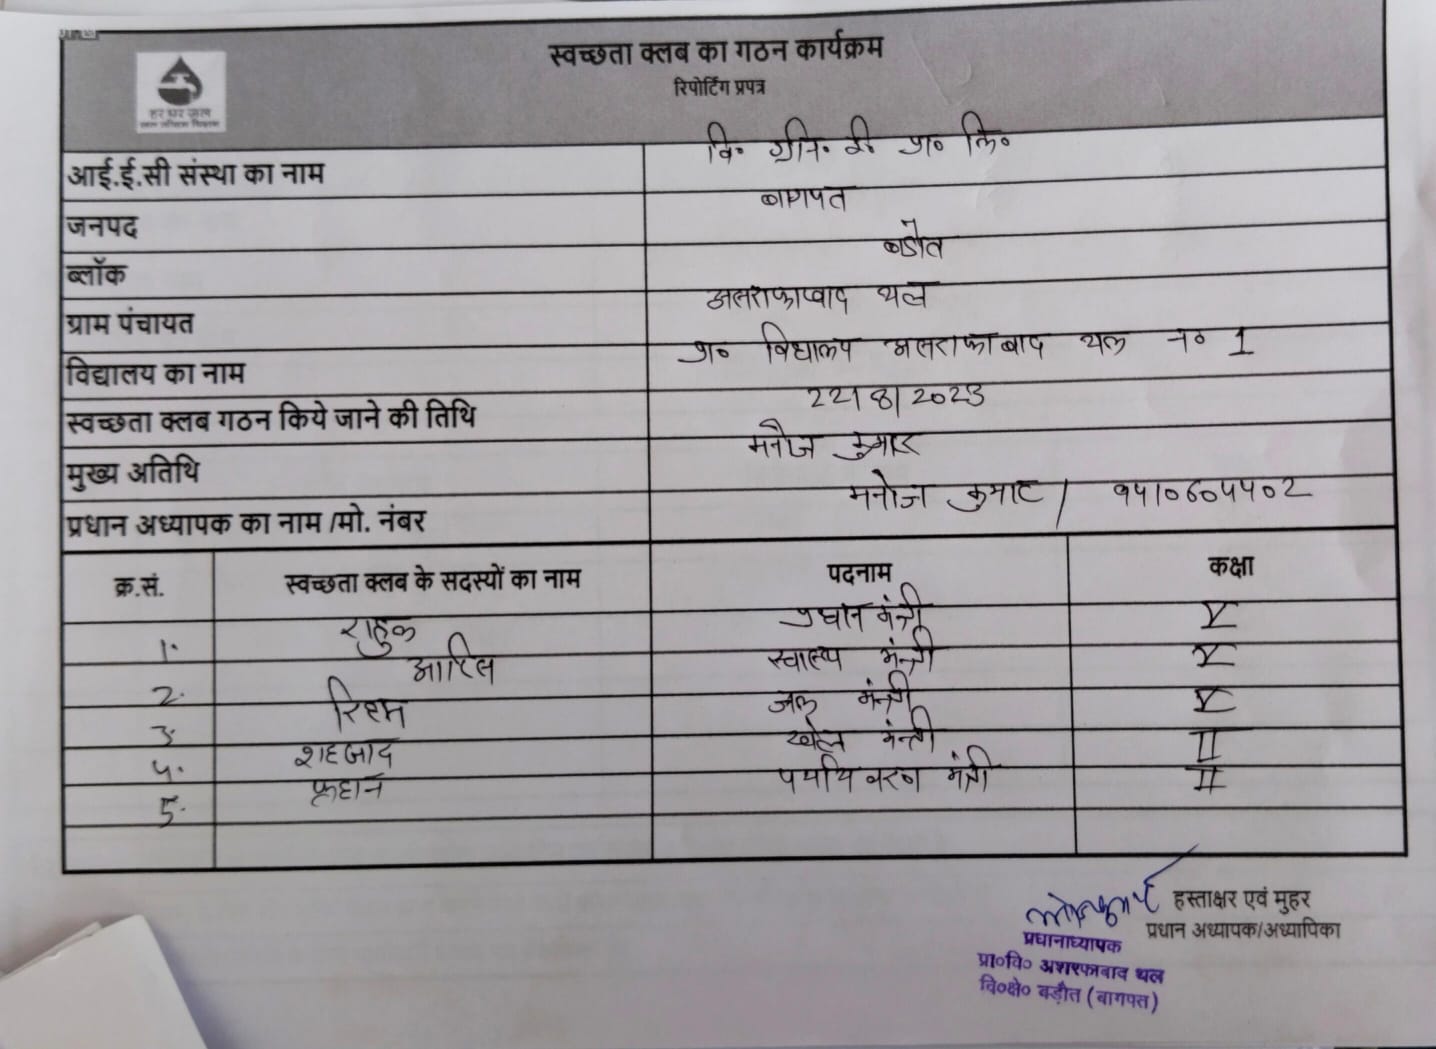 स्वच्छता क्लब का गठन कार्यक्रम
रिपोर्टिंग प्रपत्र
हर घर जल
आई.ई.सी संस्था का नाम वि॰ ग्रीन॰ ई॰ प्रा॰ लि॰
जनपद बागपत
ब्लॉक बडौत
ग्राम पंचायत असराफाबाद थल
विद्यालय का नाम प्रा॰ विद्यालय असराफाबाद थल न॰ 1
स्वच्छता क्लब गठन किये जाने की तिथि 22/8/2023
मुख्य अतिथि मनोज कुमार
प्रधान अध्यापक का नाम /मो. नंबर मनोज कुमार /
क्र.सं. स्वच्छता क्लब के सदस्यों का नाम पदनाम कक्षा
1. राहुल प्रधान मंत्री V
2. आरिस स्वास्थ्य मंत्री V
3. जल मंत्री V
4. शहजाद खेल मंत्री II
5. फरहान पर्यावरण मंत्री II
हस्ताक्षर एवं मुहर
प्रधान अध्यापक/अध्यापिका
प्रधानाध्यापक
प्रा०वि० अशरफाबाद थल
वि०क्षे० बड़ौत (बागपत)